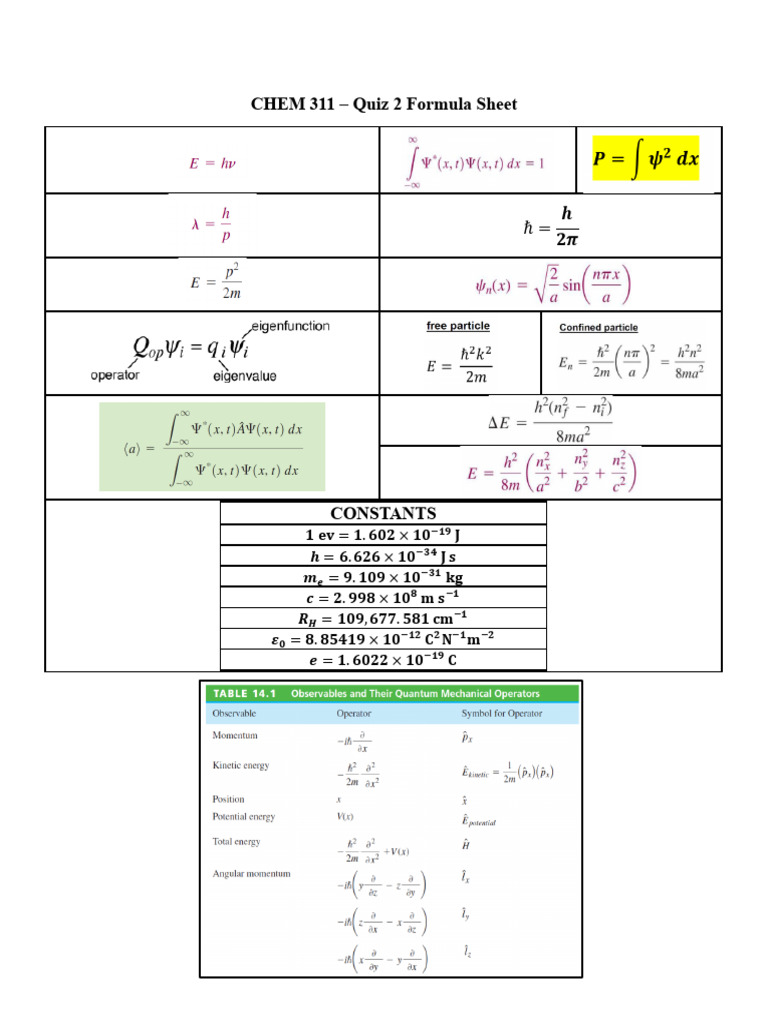 CHEM 311 – Quiz 2 Formula Sheet
E = hν
∫_{−∞}^{∞} Ψ*(x, t)Ψ(x, t) dx = 1
P = ∫ ψ² dx
λ = h/p
ℏ = h/2π
E = p²/2m
ψₙ(x) = √(2/a) sin(nπx/a)
Q_op ψᵢ = qᵢ ψᵢ
eigenfunction
operator
eigenvalue
free particle
E = ℏ²k²/2m
Confined particle
Eₙ = ℏ²/2m (nπ/a)² = h²n²/8ma²
⟨a⟩ = ∫_{−∞}^{∞} Ψ*(x, t)ÂΨ(x, t) dx / ∫_{−∞}^{∞} Ψ*(x, t)Ψ(x, t) dx
ΔE = h²(n_f² − n_i²)/8ma²
E = h²/8m (n_x²/a² + n_y²/b² + n_z²/c²)
CONSTANTS
1 ev = 1.602 × 10⁻¹⁹ J
h = 6.626 × 10⁻³⁴ J s
mₑ = 9.109 × 10⁻³¹ kg
c = 2.998 × 10⁸ m s⁻¹
R_H = 109,677.581 cm⁻¹
ε₀ = 8.85419 × 10⁻¹² C²N⁻¹m⁻²
e = 1.6022 × 10⁻¹⁹ C
TABLE 14.1 Observables and Their Quantum Mechanical Operators
Observable Operator Symbol for Operator
Momentum −iℏ ∂/∂x p̂ₓ
Kinetic energy −ℏ²/2m ∂²/∂x² Ê_kinetic = 1/2m (p̂ₓ)(p̂ₓ)
Position x x̂
Potential energy V(x) Ê_potential
Total energy −ℏ²/2m ∂²/∂x² + V(x) Ĥ
Angular momentum −iℏ(y ∂/∂z − z ∂/∂y) l̂ₓ
−iℏ(z ∂/∂x − x ∂/∂z) l̂_y
−iℏ(x ∂/∂y − y ∂/∂x) l̂_z